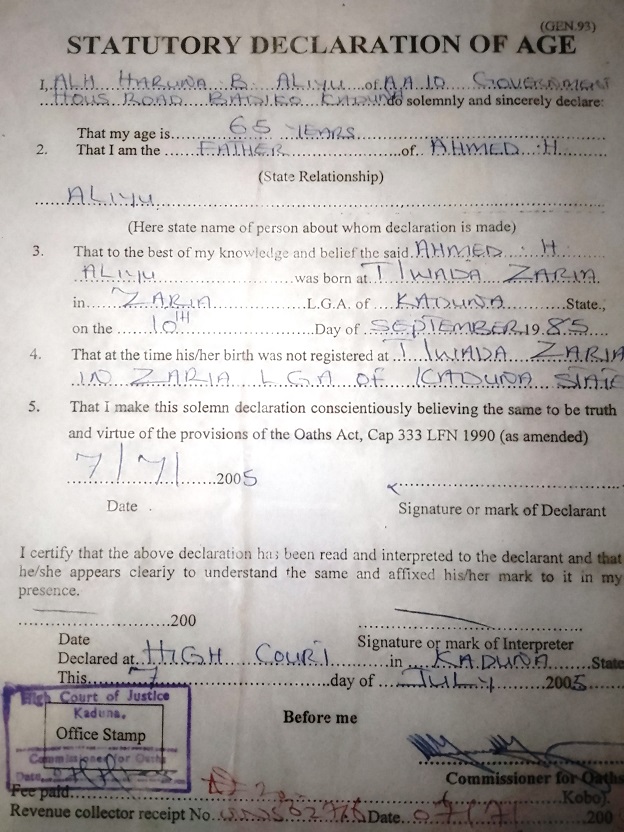 (GEN.93)
STATUTORY DECLARATION OF AGE
I, ALH HARUNA B. ALIYU of AA 10 GOVERNMENT
ROAD KADUNA do solemnly and sincerely declare:
That my age is 65 YEARS
2. That I am the FATHER of AHMED H.
(State Relationship)
ALIYU
(Here state name of person about whom declaration is made)
3. That to the best of my knowledge and belief the said AHMED H.
ALIYU was born at T/WADA ZARIA
in ZARIA L.G.A. of KADUNA State.,
on the 10TH Day of SEPTEMBER 1985
4. That at the time his/her birth was not registered at T/WADA ZARIA
IN ZARIA L.G.A OF KADUNA STATE
5. That I make this solemn declaration conscientiously believing the same to be truth
and virtue of the provisions of the Oaths Act, Cap 333 LFN 1990 (as amended)
7/7/ 2005
Date Signature or mark of Declarant
I certify that the above declaration has been read and interpreted to the declarant and that
he/she appears clearly to understand the same and affixed his/her mark to it in my
presence.
200
Date Signature or mark of Interpreter
Declared at HIGH COURT in KADUNA State
This 7 day of JULY 2005
Before me
High Court of Justice
Kaduna.
Office Stamp
Commissioner for Oaths
Date
Commissioner for Oaths
Fee paid Kobo).
Revenue collector receipt No. Date 07/7/ 200